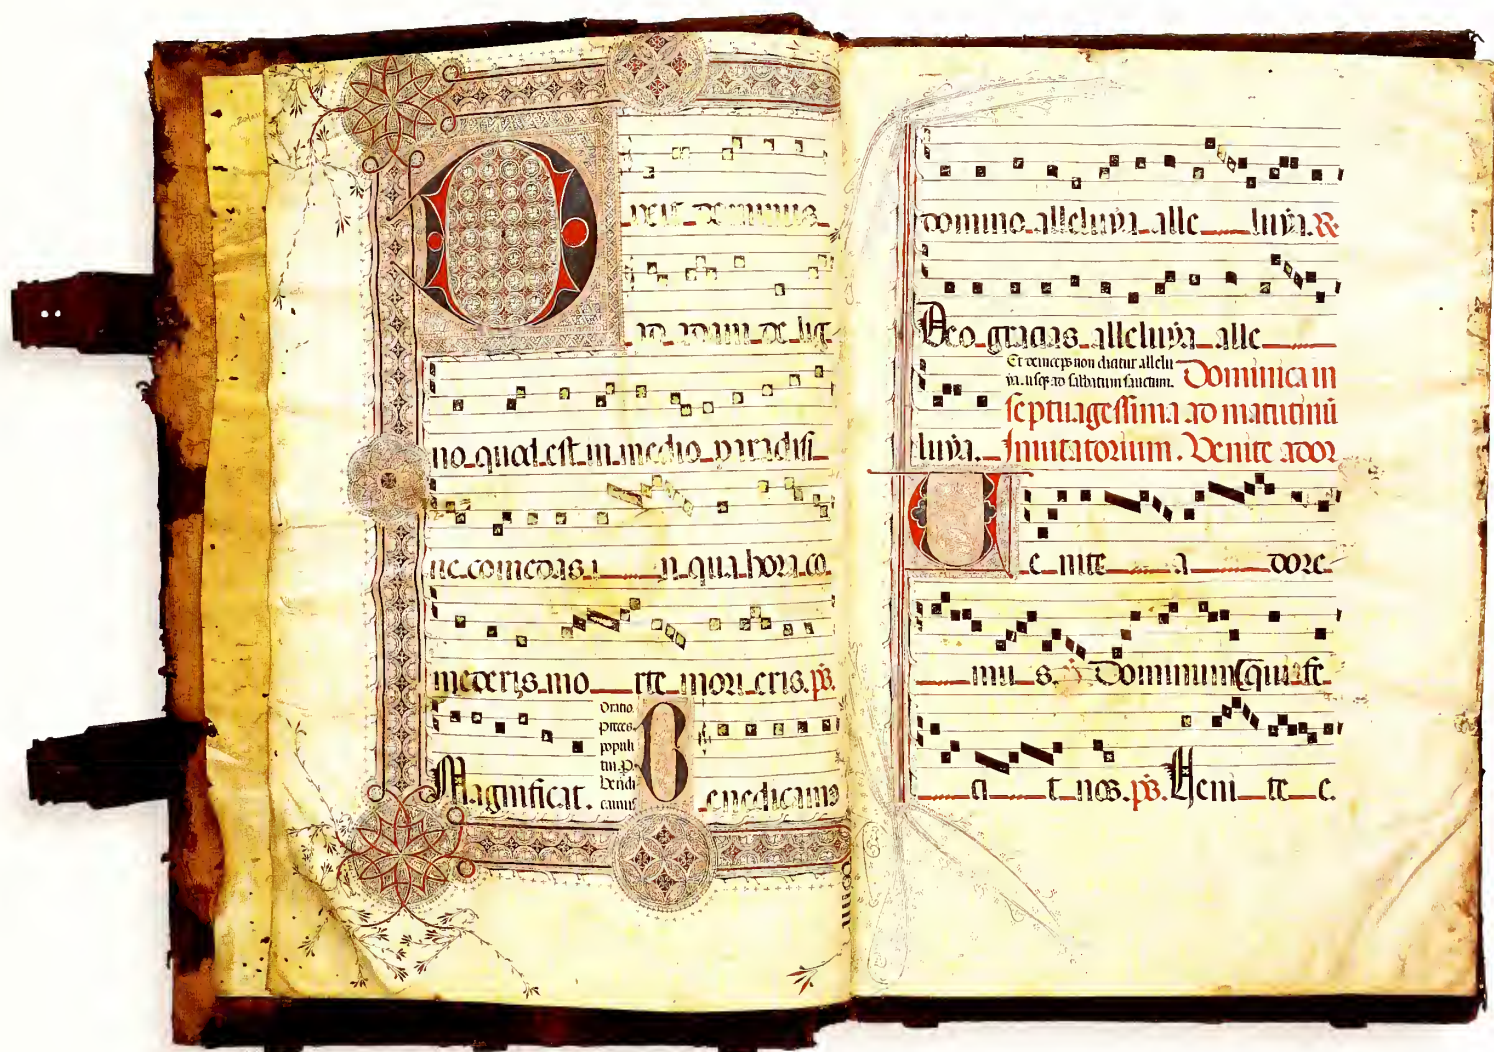 Dixit dominus
ad adam de lig
no quod est in medio paradisi
ne comedas i n qua hora co
mederis mo rte mori eris. ps.
Magnificat.
Oratio.
preces
populi
tui. p.
Bendi
camus
Benedicamus
domino alleluya alle luya. R
Deo gracias alleluya alle
Et deinceps non dicatur allelu
ya. usq ad sabbatum sanctum. Dominica in
septuagessima ad matutinu
luya. Inuitatorium. Venite ador
Ue nite a dore
mu s. Dominum qui fe
ci t nos. ps. Veni te e.